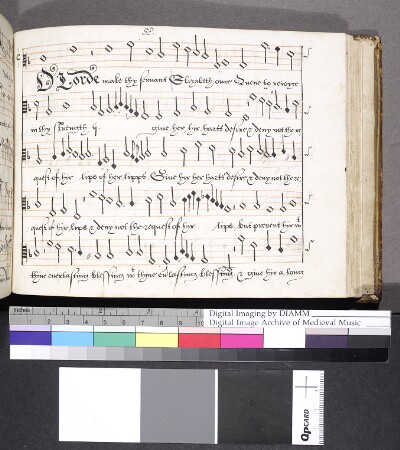 58.
O Lorde make thy servant Elizabeth oure Quene to reioyce
in thy strength ij. give her hir harts desire & deny not the re
quest of hir lips of her lipps Give hir her harts desire, & deny not the re
quest of hir lips & deny not the request of hir lips. but prevent hir wt
thine everlasting blessing wt thine everlasting blessing, & give hir a, long
inches 1 2
Digital Imaging by DIAMM
Digital Image Archive of Medieval Music
2 3 4 5 6 7 8 9 10
QPCARD